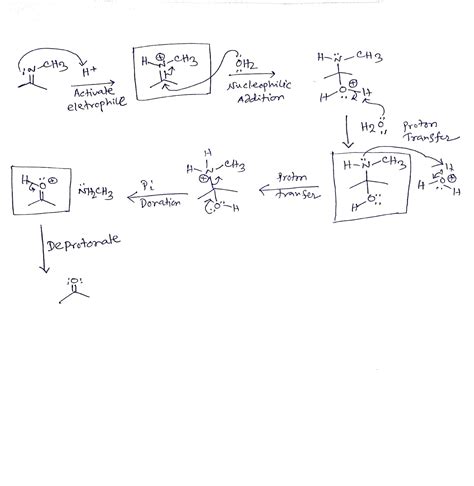 N CH3 H+
Activate
eletrophile
H-N-CH3
ÖH2
Nucleophilic
Addition
H-N-CH3
H O H
H2O
Proton
Transfer
H-N-CH3
H O
H
H O H
Proton
transfer
H
N-CH3
O-H
Pi
Donation
H O
NH2CH3
Deprotonate
O